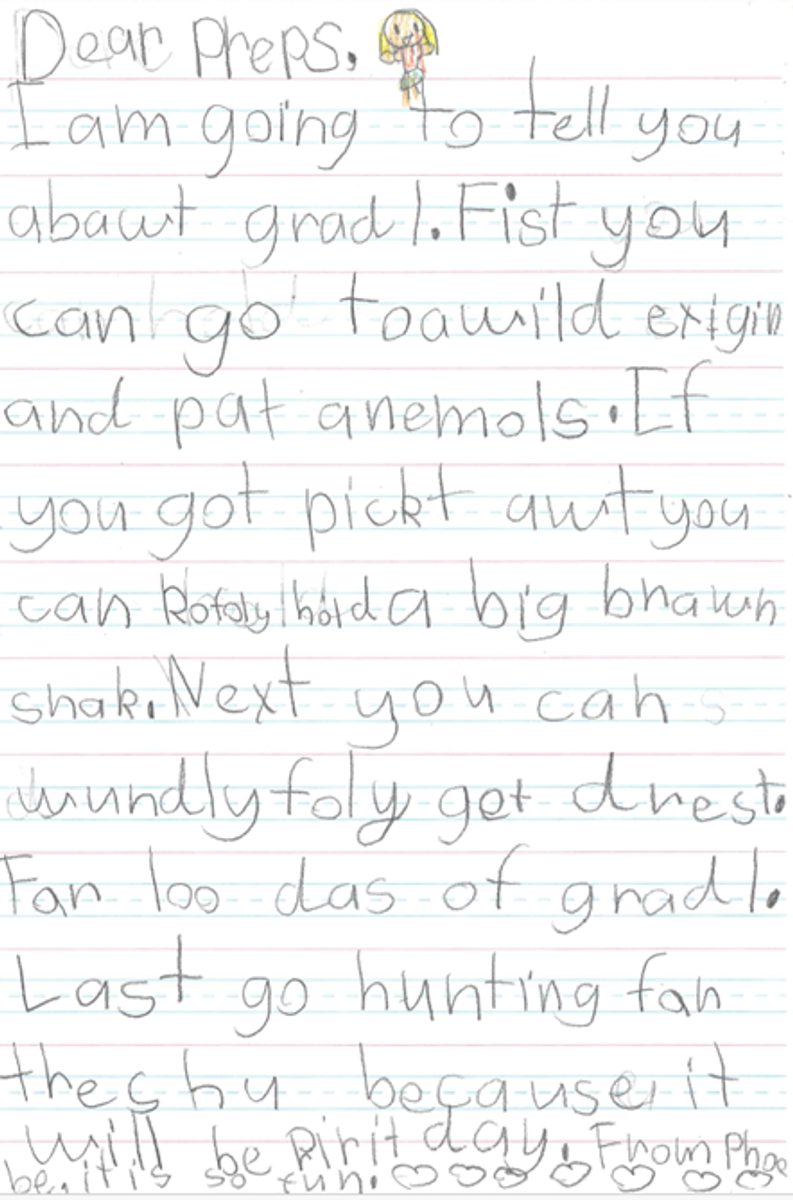 Dear Preps.
I am going to tell you
abawt grad 1. Fist you
can go toawild exigin
and pat anemols. If
you got pickt awt you
can hold a big brawn
shak. Next you can
wundlyfoly get drest.
For 100 das of grad 1.
Last go hunting for
theshu because it
will be Pirit day. From Phoe
be. it is so fun.